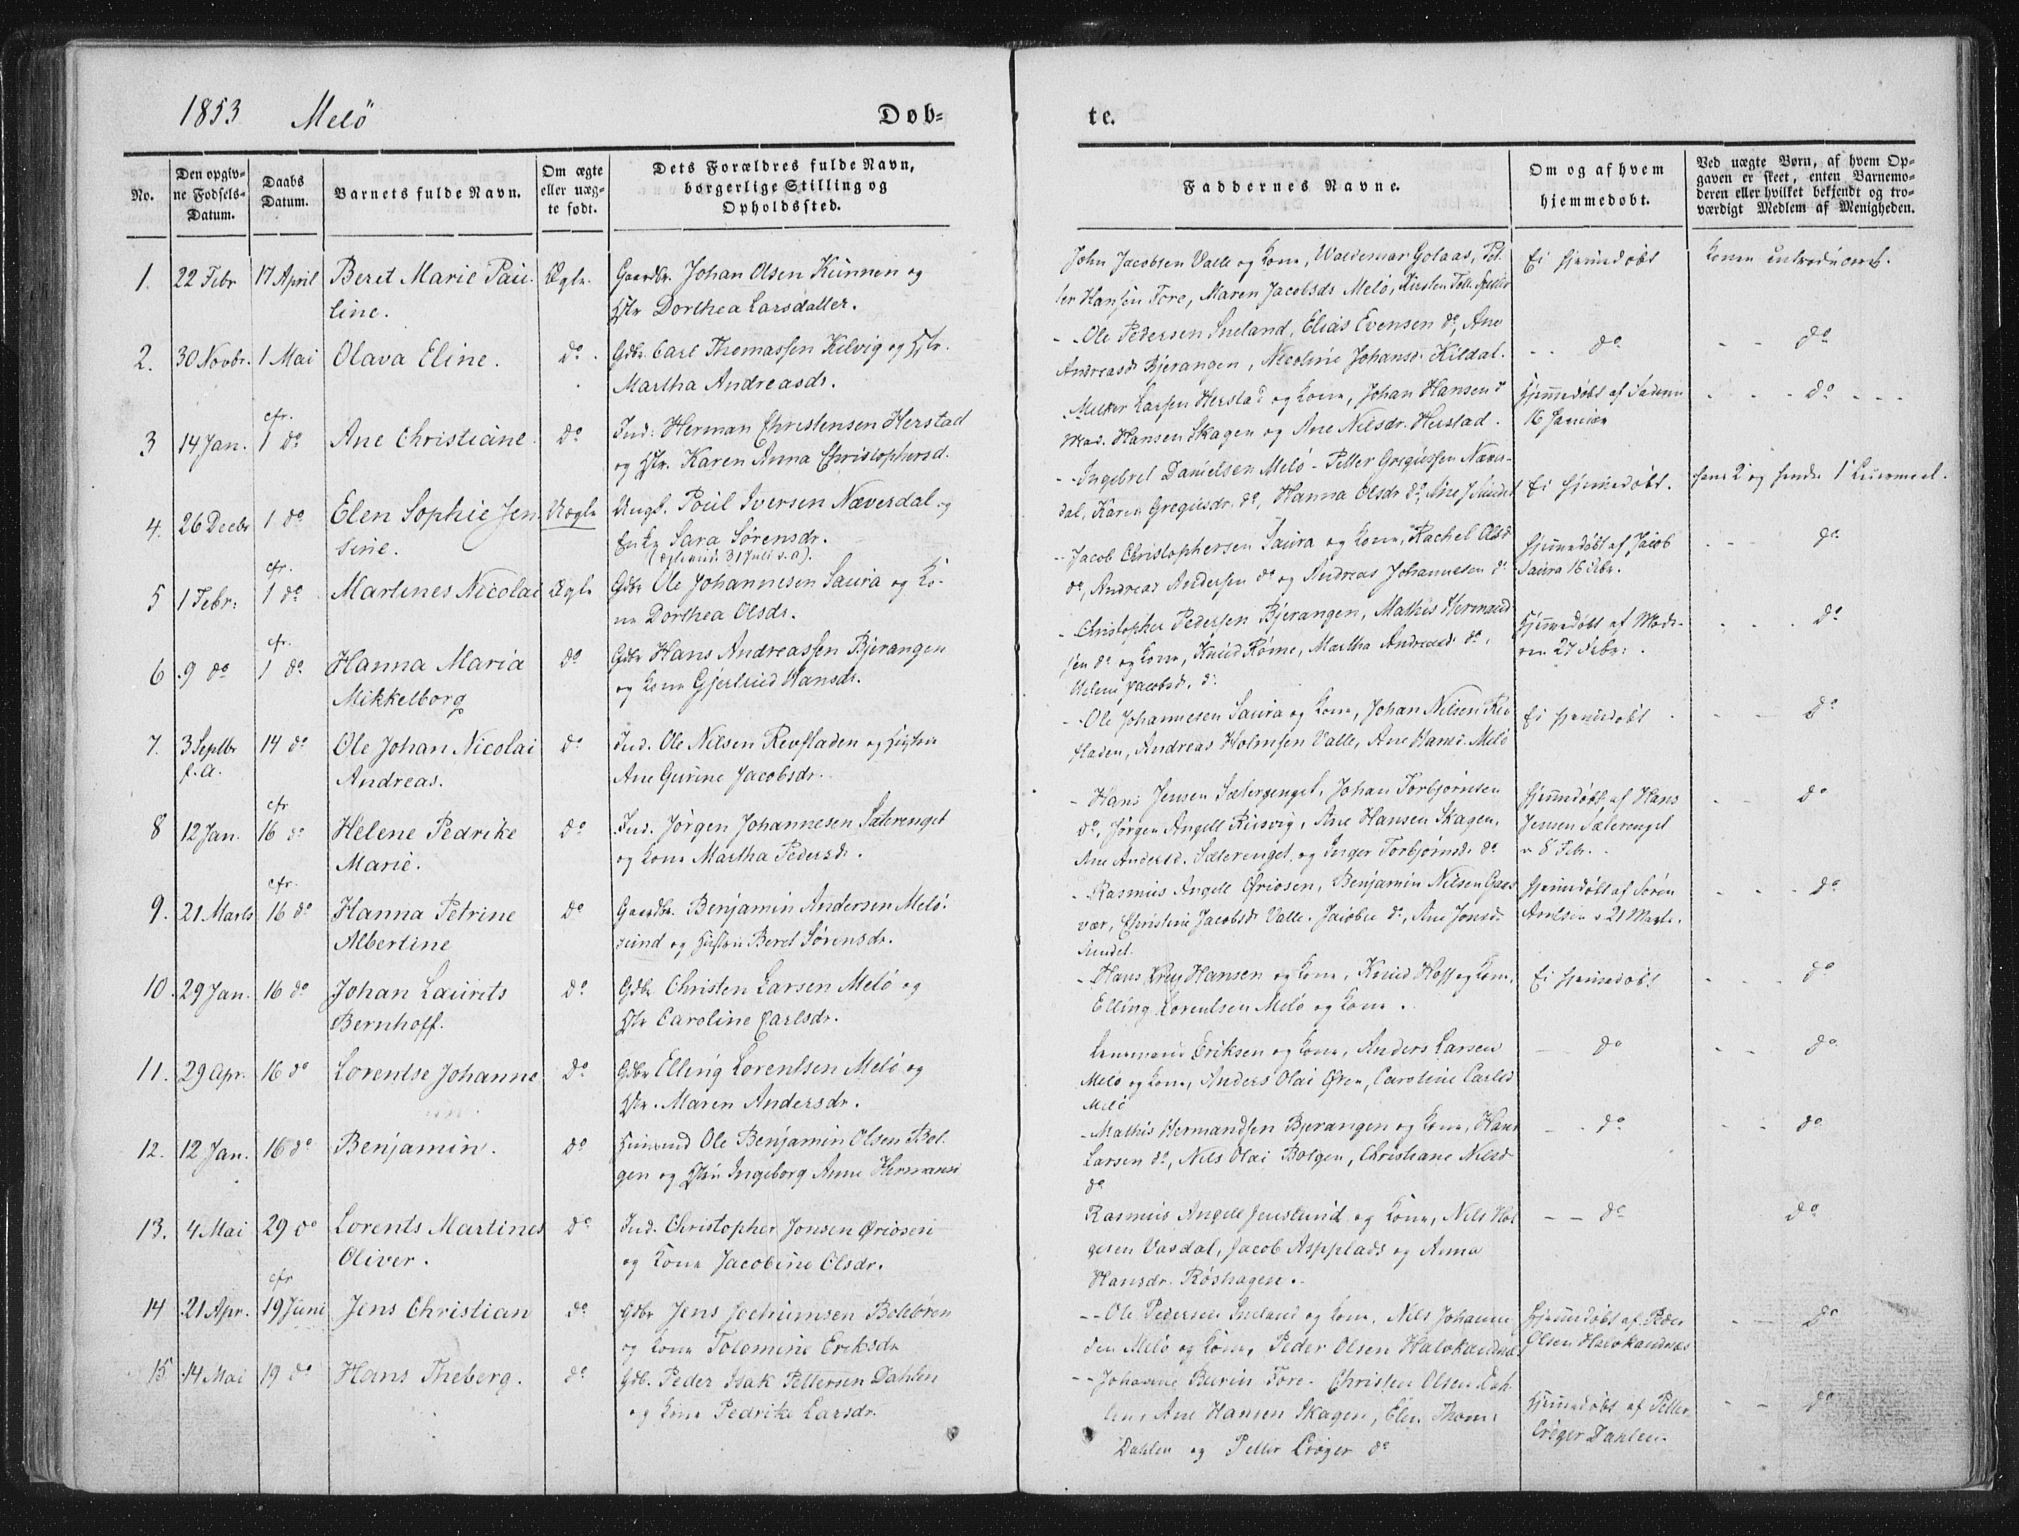 1853 Melö Døb-
No.
Den opgiv-
ne Fødsels-
Datum.
Daabs
Datum.
Barnets fulde Navn.
Om ægte
eller uæg-
te født.
Dets Forældres fulde Navn,
borgerlige Stilling og
Opholdssted.
1. 22 Febr 17 April Beret Marie Pau- Ægte. Gaardbr. Johan Olsen Kunnen og
line. Hstr Dorthea Larsdatter.
2. 30 Novbr. 1 Mai Olava Eline. do. Gdbr. Carl Thomassen Kilvig og Hstr.
Martha Andreasdr.
cfr.
3 14 Jan. 1 do Ane Christiane. do Ind: Herman Christensen Herstad
og Hstr. Karen Anna Christophersd.
4. 26 Decbr 1 do Elen Sophie Jen- Uægte Ungk. Poul Iversen Næverdal og
sine. Enke Sara Sørensdr.
cfr. 31 Juli s.a).
5 1 Febr: 1 do Martines Nicolai Ægte Gdbr Ole Johannesen Saura og Ko-
ne Dorthea Olsdr.
cfr.
6 9 do 1 do. Hanna Maria do Gdbr Hans Andreassen Bjerangen
Mikkelborg og Kone Gjertrud Hansdr.
7. 3 Septbr 14 do Ole Johan Nicolai do. Ind. Ole Nilsen Revfladen og Hustru
f.a. Andreas. Ane Gurine Jacobsdr.
cfr
8 12 Jan. 16 do Helene Pedrike do Ind. Jørgen Johannesen Sæterenget
Marie. og Kone Martha Pedersdr.
cfr.
9. 21 Marts 16 do Hanna Petrine do Gaardbr. Benjamin Andersen Melö-
Albertine sund og Hustru Beret Sørensdr.
10. 29 Jan. 16 do Johan Laurits do. Gdbr Christen Larsen Melö og
Bernhoff. Hstr Caroline Carlsdr.
11. 29 Apr. 16 do Lorentse Johanne do. Gdbr Elling Lorentsen Melö og
Hstr. Maren Andersdr.
12. 12 Jan. 16 do Benjamin. do Huusmd Ole Benjamin Olsen Bol-
gen og Hstr Ingeborg Anne Hermansd
13. 4 Mai 29 do Lorents Martines do Ind. Christopher Jonsen Øriosen
Oliver. og Kone Jacobine Olsdr.
cfr
14 21 Apr. 19 Juni Jens Christian do Gdbr Jens Jochumsen Bolsøren
og Kone Tolomine Eriksdr
15 14 Mai 19 do Hans Theberg. do Gdb. Peder Isak Pettersen Dahlen
og Kone Pedrike Larsdr.
te.
Faddernes Navne.
Om og af hvem
hjemmedøbt.
Ved uægte Børn, af hvem Op-
gaven er skeet, enten Barnemo-
deren eller hvilket bekjendt og tro-
værdigt Medlem af Menigheden.
John Jacobsen Valle og Kone, Waldemar Golaas, Pet- Ei hjemmedøbt Konen introduceret.
ter Hansen Fore, Maren Jacobsdr Melö, Kirsten
- Ole Pedersen Sneland, Elias Evensen do, Ane -- do -- do
Andreasdr Bjerangen, Nicoline Johansdr Kildal.
Melker Larsen Herstad og Kone, Johan Hansen do Hjemmedøbt af - - do - - -
Hansen Skagen og Ane Nilsdr. Herstad. 16 Januar
- Ingebret Danielsen Melö - Petter Gregussen Næver- Ei hjemmedøbt. hans 2 og hendes 1 Leiermaal.
dal, Karen Gregusdr. do, Hanna Olsdr do, Ane J Sundet
- Jacob Christophersen Saura og Kone, Rachel Olsd Hjemmedøbt af Jacob - - do
do, Andreas Andersen do og Andreas Johannesen do Saura 16 Febr.
- Christopher Pedersen Bjerangen, Mathis Hermand- Hjemmedøbt af Mode- - - do
sen do og Kone, Knud Røme, Martha Andreasd do, ren 27 Febr:
Helene Jacobsd. do
- Ole Johannesen Saura og Kone, Johan Nilsen Rev- Ei hjemmedøbt - - do
fladen, Andreas Holmsen Valle, Ane Hansd. Melö
- Hans Jensen Sæterenget, Johan Torbjørnsen Hjemmedøbt af Hans - - do
do, Jørgen Angell Rusvig, Ane Hansen Skagen, Jensen Sæterenget
Ane Andersd. Sæterenget og Inger Torbjørnsd. do 8 Febr.
- Rasmus Angell Øriosen, Benjamin Nilsen Gaas- Hjemmedøbt af Søren - - do
vær, Christine Jacobsdr Valle. Jacobse do, Ane Jonsd Arntsen 21 Marts.
Sundet
- Hans Krey Hansen og Kone, Knud Hoff og Kone, Ei hjemmedøbt - - do
Elling Lorentsen Melö og Kone.
Lensmand Eriksen og Kone, Anders Larsen -- do -- do
Melö og Kone, Anders Olai Øren, Caroline Carlsd
Melö
- Mathis Hermandsen Bjerangen og Kone, Hans -- do -- do
Larsen do, Nils Olai Bolgen, Christiane Nilsd
do
Rasmus Angell Jenslund og Kone, Nils Hol- -- do do
gesen Vasdal, Jacob Aspplads og Anna
Hansdr. Røshagen.
-- Ole Pedersen Sneland og Kone, Nils Johanne- Hjemmedøbt af Peder -- do
sen Melö og Kone, Peder Olsen Halokandnes Olsen Halokandnes
-- Johanne Burin Fore - Christen Olsen Dah- Hjemmedøbt af Petter -- do
len, Ane Hansen Skagen, Elen Thoms Crøger Dahlen.
Dahlen og Petter Crøger do